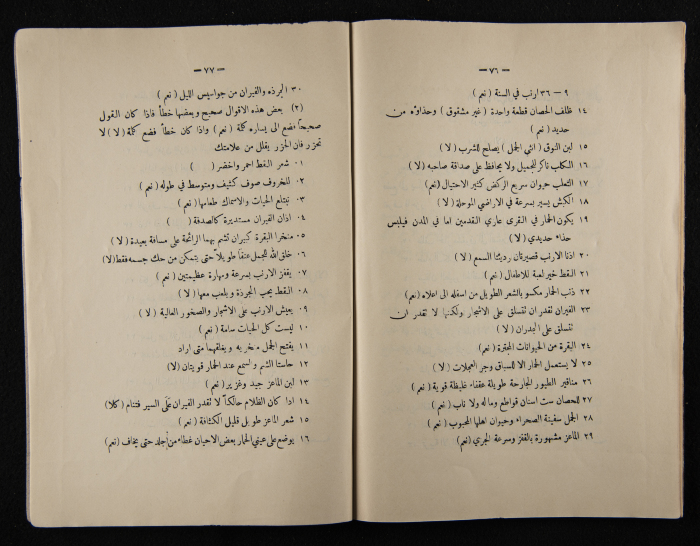 — ٧٦ —
٩ — ٣٦ ارنب في السنة ( نعم )
١٤ ظلف الحصان قطعة واحدة ( غير مشقوق ) وحذاؤه من
حديد ( نعم )
١٥ لبن النوق ( انثي الجمل ) يصلح للشرب ( لا )
١٦ الكلب ناكر للجميل ولا يحافظ على صداقة صاحبه ( لا )
١٧ الثعلب حيوان سريع الركض كثير الاحتيال (نعم)
١٨ الكبش يسير بسرعة في الاراضي الموحلة ( لا )
١٩ يكون الحمار في القرى عاري القدمين اما في المدن فيلبس
حذاء حديدي ( لا )
٢٠ اذنا الارنب قصيرتان رديئتا السمع ( لا )
٢١ القط خير لعبة للاطفال ( نعم )
٢٢ ذنب الحمار مكسو بالشعر الطويل من اسفله الى اعلاه (نعم)
٢٣ الفيران تقدر ان تتسلق على الاشجار ولكنها لا تقدر ان
تتسلق على الجدران ( لا )
٢٤ البقرة من الحيوانات المجترة ( نعم )
٢٥ لا يستعمل الحمار الا للسباق وجر العجلات ( لا )
٢٦ مناقير الطيور الجارحة طويلة عقفاء غليظة قوية ( نعم )
٢٧ للحصان ست اسنان قواطع وماله ولا ناب ( نعم )
٢٨ الجمل سفينة الصحراء وحيوان اهلها المحبوب ( نعم )
٢٩ الماعز مشهورة بالقفز وسرعة الجري (نعم)
— ٧٧ —
٣٠ الجرذه والفيران من جواسيس الليل ( نعم )
(٢) بعض هذه الاقوال صحيح وبعضها خطأ فاذا كان القول
صحيحاً فضع الى يساره كلمة ( نعم ) واذا كان خطأ فضع كلمة ( لا ) لا
تحزر فان الحزر يقلل من علامتك
٠١ شعر القط احمر واخضر ( )
٠٢ للخروف صوف كثيف ومتوسط في طوله ( نعم )
٠٣ تبتلع الحيات والاسماك طعامها ( نعم )
٠٤ اذان الفيران مستديرة كالصدفة ( )
٠٥ منخرا البقرة كبيران تشم بهما الرائحة على مسافة بعيدة ( لا )
٠٦ خلق الله للجمل عنقاً طويلاً حتى يتمكن من حك جسمه فقط(لا)
٠٧ يقفز الارنب بسرعة ومهارة عظيمتين ( نعم )
٠٨ القط يحب الجرذة ويلعب معها ( لا )
٠٩ يعيش الارنب على الاشجار والصخور العالية ( لا )
١٠ ليست كل الحيات سامة ( نعم )
١١ يفتح الجمل منخريه ويغلقهما متى اراد
١٢ حاستا الشم والسمع عند الحمار قويتان (لا)
١٣ لبن الماعز جيد وغزير ( نعم )
١٤ اذا كان الظلام حالكاً لا تقدر الفيران على السير فتنام (كلا)
١٥ شعر الماعز طويل قليل الكثافة ( نعم )
١٦ يوضع على عيني الحمار بعض الاحيان غطاء من اجلد حتى يخاف (نعم)